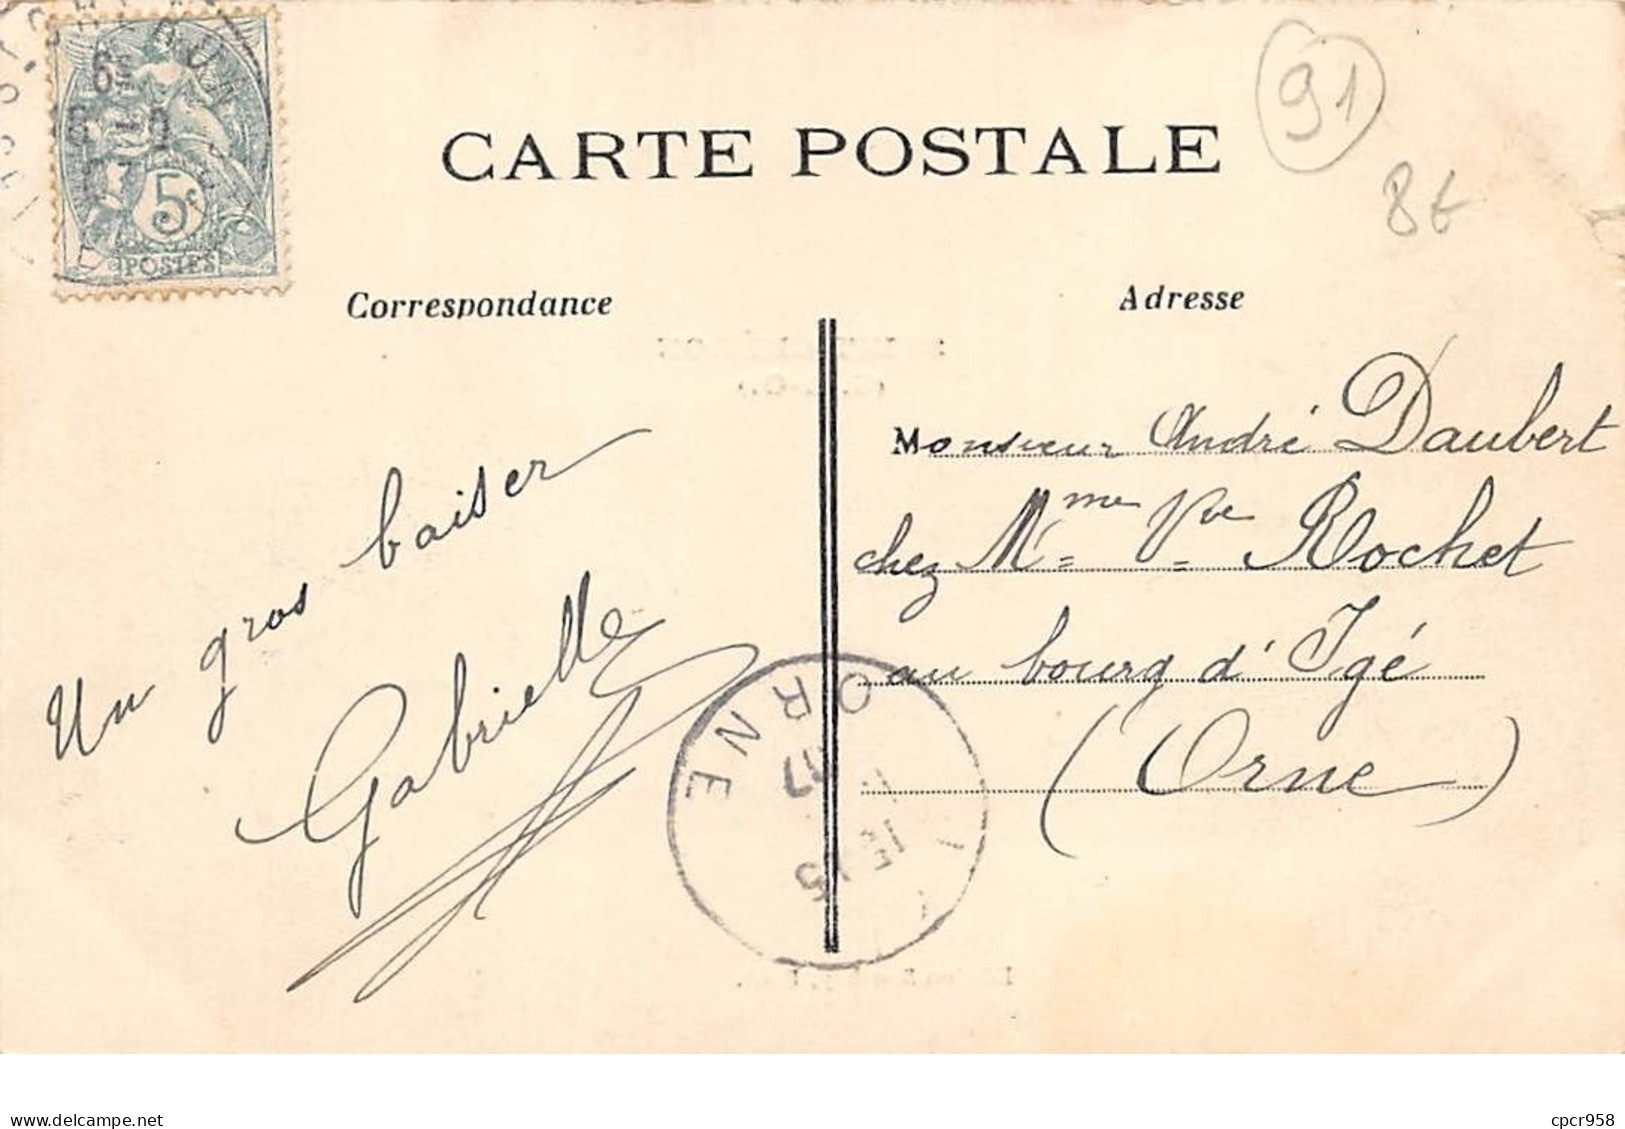 CARTE POSTALE
91
8€
5c
POSTES
Correspondance
Adresse
Un gros baiser
Gabrielle
Monsieur André Daubert
chez Mme Vve Rochet
au bourg d'Igé
(Orne)
ORNE
07
www.delcampe.net
cpcr958